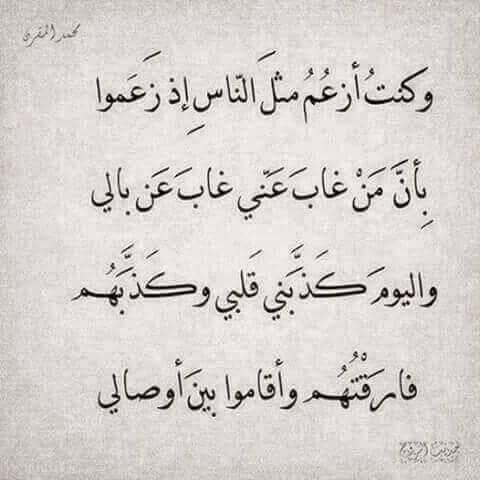 محمد المقرن
وكنتُ أزعُمُ مثلَ النّاسِ إذ زَعَموا
بِأنَّ مَنْ غابَ عَنّي غابَ عَن بالي
واليومَ كَذَّبَني قَلبي وكَذَّبَهُم
فارَقْتُهُم وأقاموا بينَ أوصالي